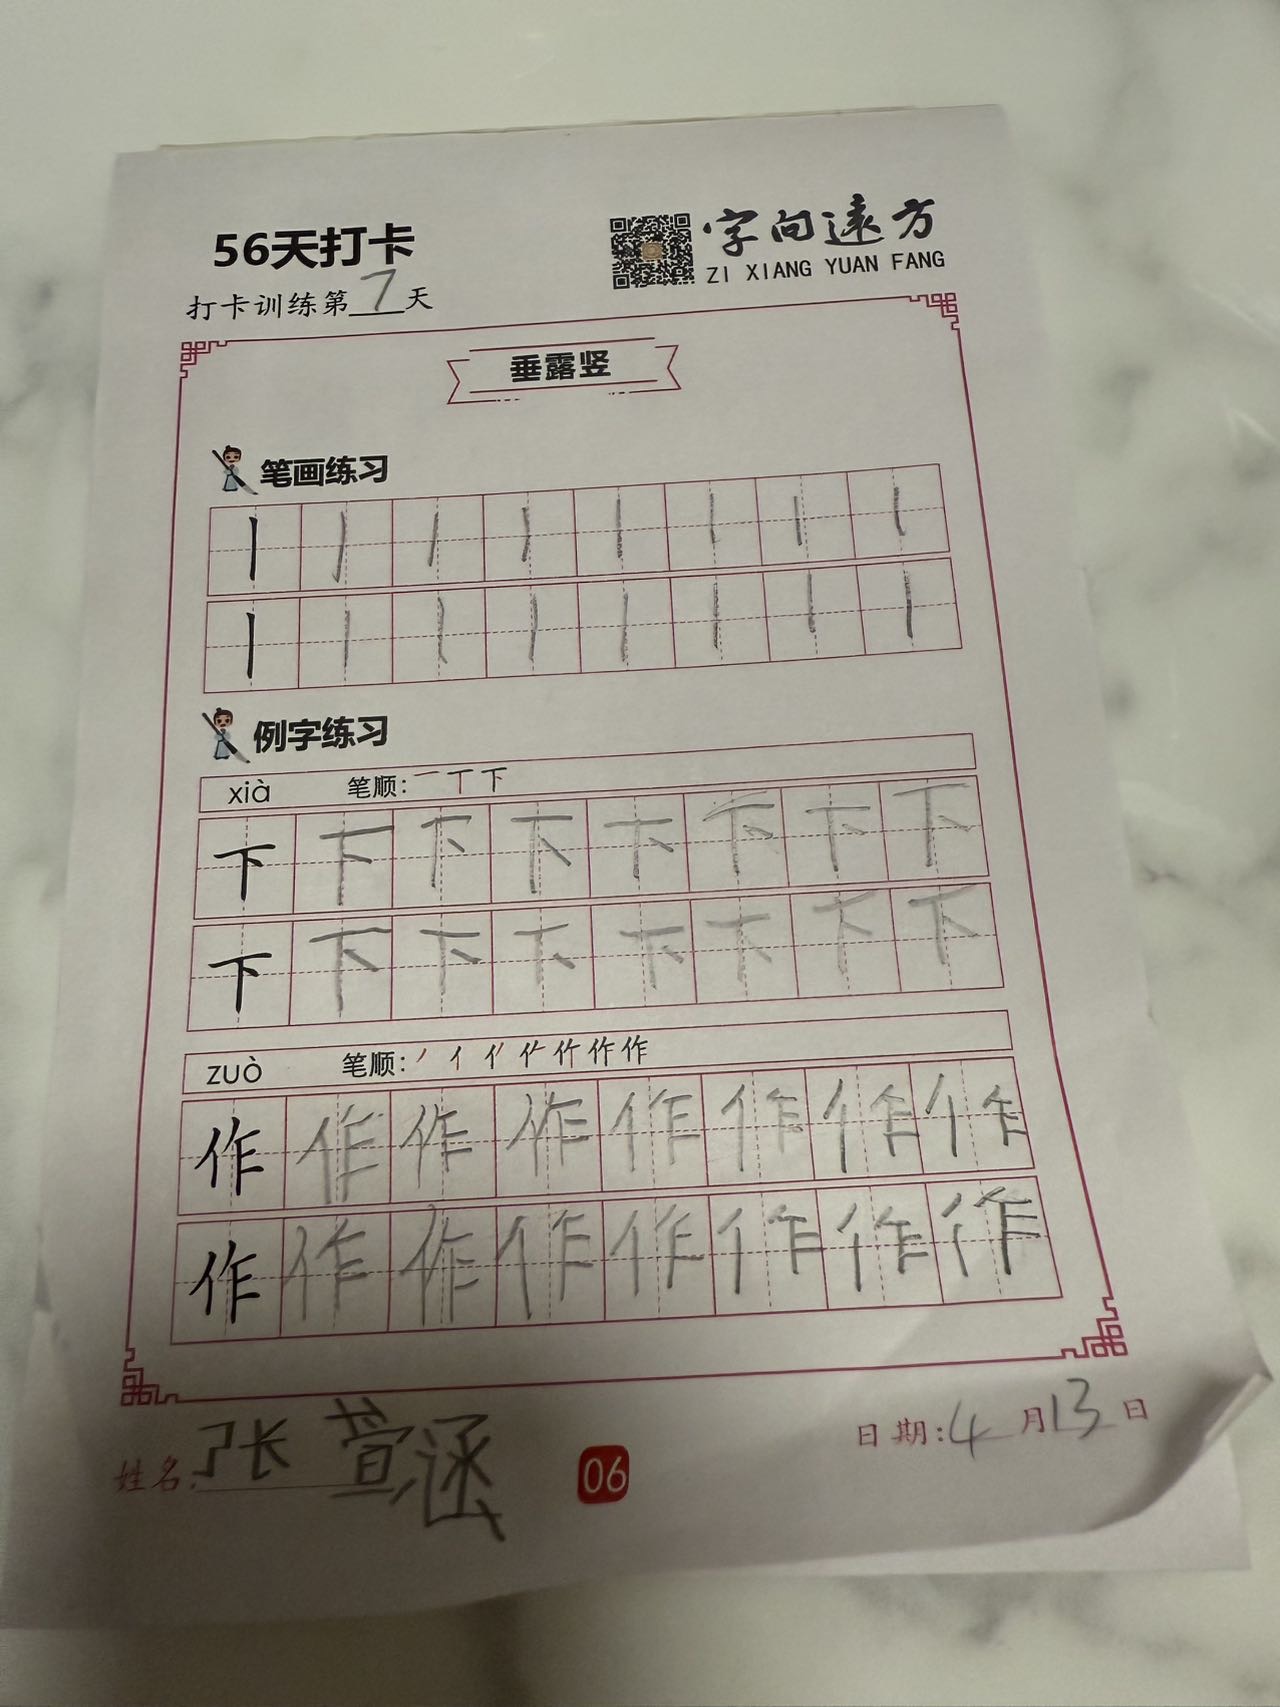 56天打卡
字向远方
ZI XIANG YUAN FANG
打卡训练第7天
垂露竖
笔画练习
丨丨丨丨丨丨丨丨
丨丨丨丨丨丨丨丨
例字练习
xià 笔顺: 一丅下
下下下下下下下下
下下下下下下下下
zuò 笔顺: 丿亻亻 作
作作作作作作作作
作作作作作作作作
姓名: 张萱涵
06
日期: 4月13日